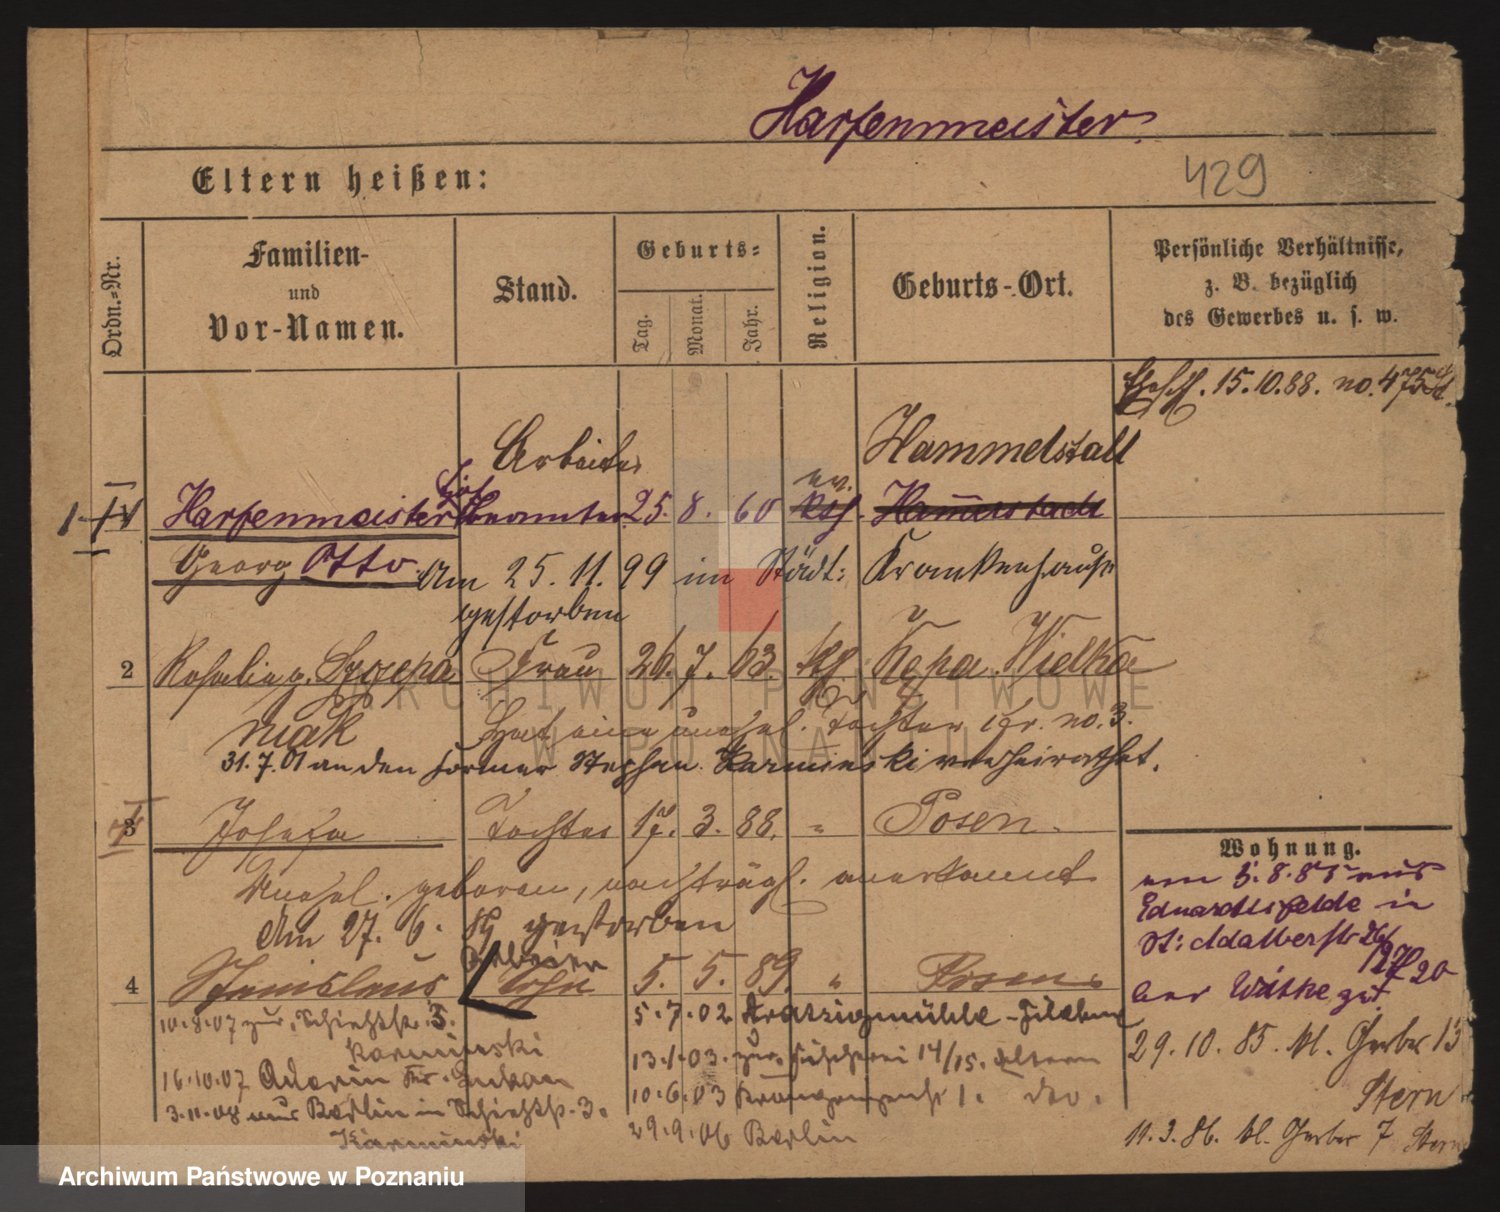 Harfenmeister.
429
Eltern heißen:
Ordn.-Nr.
Familien-
und
Vor-Namen.
Stand.
Geburts-
Tag.
Monat.
Jahr.
Religion.
Geburts-Ort.
Persönliche Verhältnisse,
z. B. bezüglich
des Gewerbes u. s. w.
Ehesch. 15.10.88. no. 475
Arbeiter
Hammelstall
ev.
1 Harfenmeister 25. 8. 60 kth. Hammerstadt
Georg Otto Am 25. 11. 99 im Städt: Krankenhause
gestorben
2 Rosalie g. Szczepa Frau 26. 7. 63. kth. Kępa Wielka
niak Hat eine unehel. Tochter cfr. no. 3.
31.7.01 an den Former Stephan Karminski verheirathet.
3 Josefa Tochter 17. 3. 88. " Posen.
Unehel. geboren, nachträgl. anerkannt
Am 27. 6. gestorben
4 Stanislaus Sohn 5. 5. 89. " Posen.
10.8.07 zur. Schießstr. 5.
Karminski
16.10.07
3.11.08 aus Berlin in Schießstr. 3.
Karminski
5.7.02 Kratzigmühle -
13.1.03. zur. Fischerei 14/15. Eltern
10.6.03 1. do.
29.9.06 Berlin
Wohnung.
am 3.8.85 aus
Eduardsfelde in
St: Adalbertstr
bei Witke
29.10.85. kl. Gerber 13
Stern
11.3.86. kl. Gerber 7 Stern
ARCHIWUM PAŃSTWOWE
W POZNANIU
Archiwum Państwowe w Poznaniu